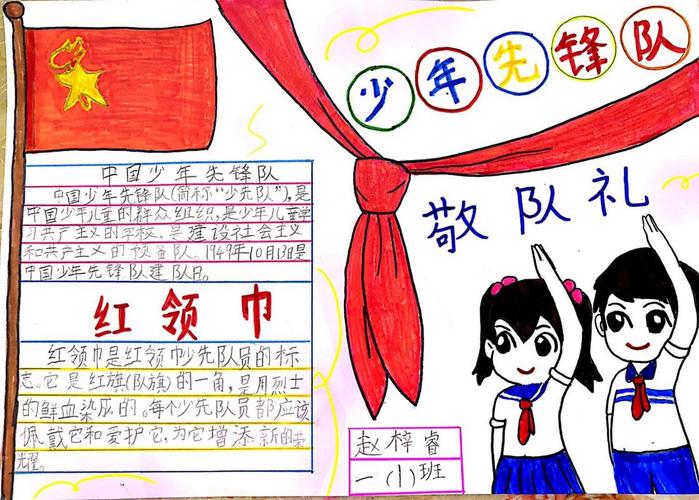 少年先锋队
敬队礼
中国少年先锋队
中国少年先锋队(简称“少先队”),是
中国少年儿童的群众组织,是少年儿童学
习共产主义的学校,是建设社会主义
和共产主义的预备队。1949年10月13日是
中国少年先锋队建队日。
红领巾
红领巾是红领巾少先队员的标
志。它是红旗(队旗)的一角,是用烈士
的鲜血染成的。每个少先队员都应该
佩戴它和爱护它,为它增添新的荣
光耀。
赵梓睿
一(1)班